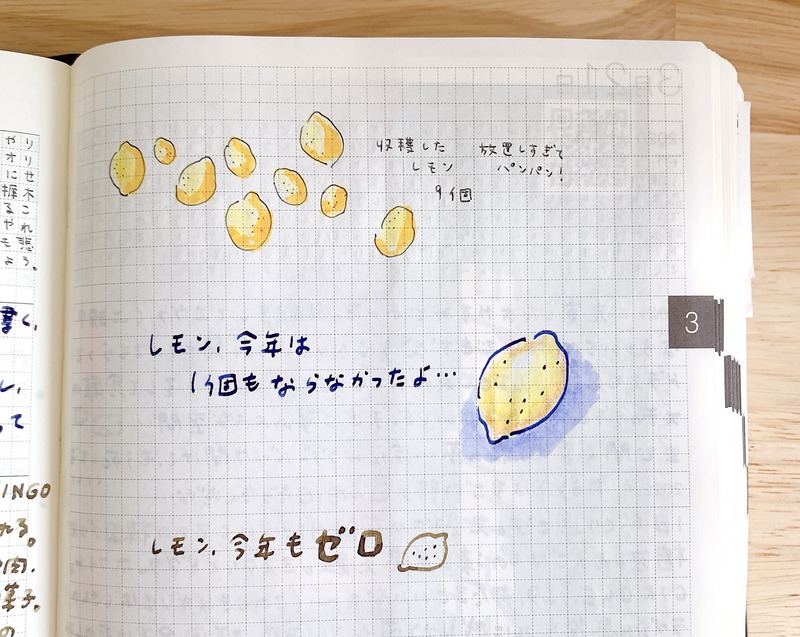 収穫した
レモン
9個
放置しすぎて
パンパン!
レモン、今年は
1個もならなかったよ…
レモン、今年もゼロ
3
3月21日
やり
オリ
にせ
握木
るこ
やれ
も悲
よう。
書く、
し、
って
INGO
れる。
肉.
菓子。
の